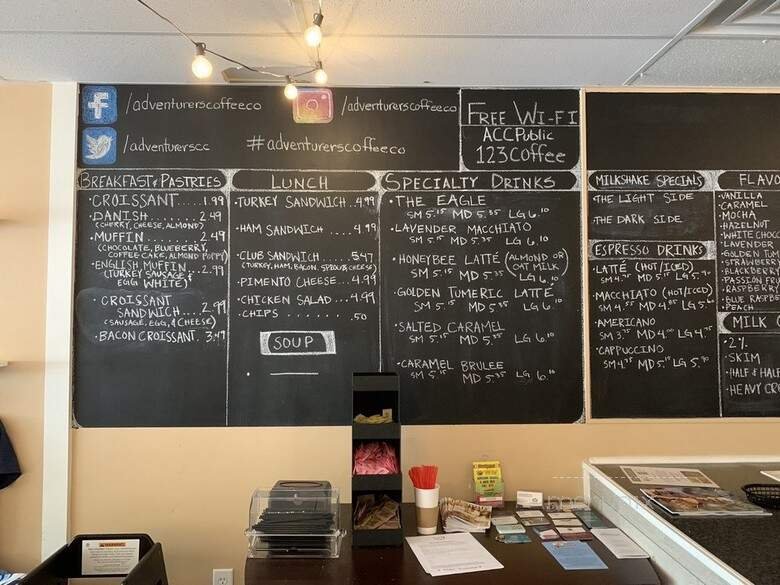 /adventurerscoffeeco
/adventurerscoffeeco
/adventurerscc
#adventurerscoffeeco
FREE WI-FI
ACCPublic
123Coffee
BREAKFAST & PASTRIES
· CROISSANT.....1.99
· DANISH........2.49
(CHERRY, CHEESE, ALMOND)
· MUFFIN........2.49
(CHOCOLATE, BLUEBERRY,
COFFEE CAKE, ALMOND POPPY)
· ENGLISH MUFFIN...2.99
(TURKEY SAUSAGE &
EGG WHITE)
· CROISSANT
SANDWICH....2.99
(SAUSAGE, EGG, & CHEESE)
· BACON CROISSANT. 3.49
LUNCH
· TURKEY SANDWICH..4.99
· HAM SANDWICH ....4.99
· CLUB SANDWICH....5.47
(TURKEY, HAM, BACON, SPROUTS, CHEESE)
· PIMENTO CHEESE...4.99
· CHICKEN SALAD...4.99
· CHIPS ....... .50
SOUP
SPECIALTY DRINKS
· THE EAGLE
SM 5.15 MD 5.35 LG 6.10
· LAVENDER MACCHIATO
SM 5.15 MD 5.35 LG 6.10
· HONEYBEE LATTÉ (ALMOND OR
OAT MILK)
SM 5.15 MD 5.35 LG 6.10
· GOLDEN TUMERIC LATTE
SM 5.15 MD 5.35 LG 6.10
· SALTED CARAMEL
SM 5.15 MD 5.35 LG 6.10
· CARAMEL BRULEE
SM 5.15 MD 5.35 LG 6.10
MILKSHAKE SPECIALS
· THE LIGHT SIDE
· THE DARK SIDE
ESPRESSO DRINKS
· LATTÉ (HOT/ICED)
· MACCHIATO (HOT/ICED)
· AMERICANO
SM 3.75 MD 4.00 LG 4.75
· CAPPUCCINO
SM 4.75 MD 5.15 LG 5.90
FLAVO
· VANILLA
· CARAMEL
· MOCHA
· HAZELNUT
· WHITE CHOC
· LAVENDER
· GOLDEN TUM
· STRAWBERR
· BLACKBERR
· PASSION FRU
· RASPBERRY
· BLUE RASPB
· PEACH
MILK
· 2%
· SKIM
· HALF & HALF
· HEAVY CR
WARNING